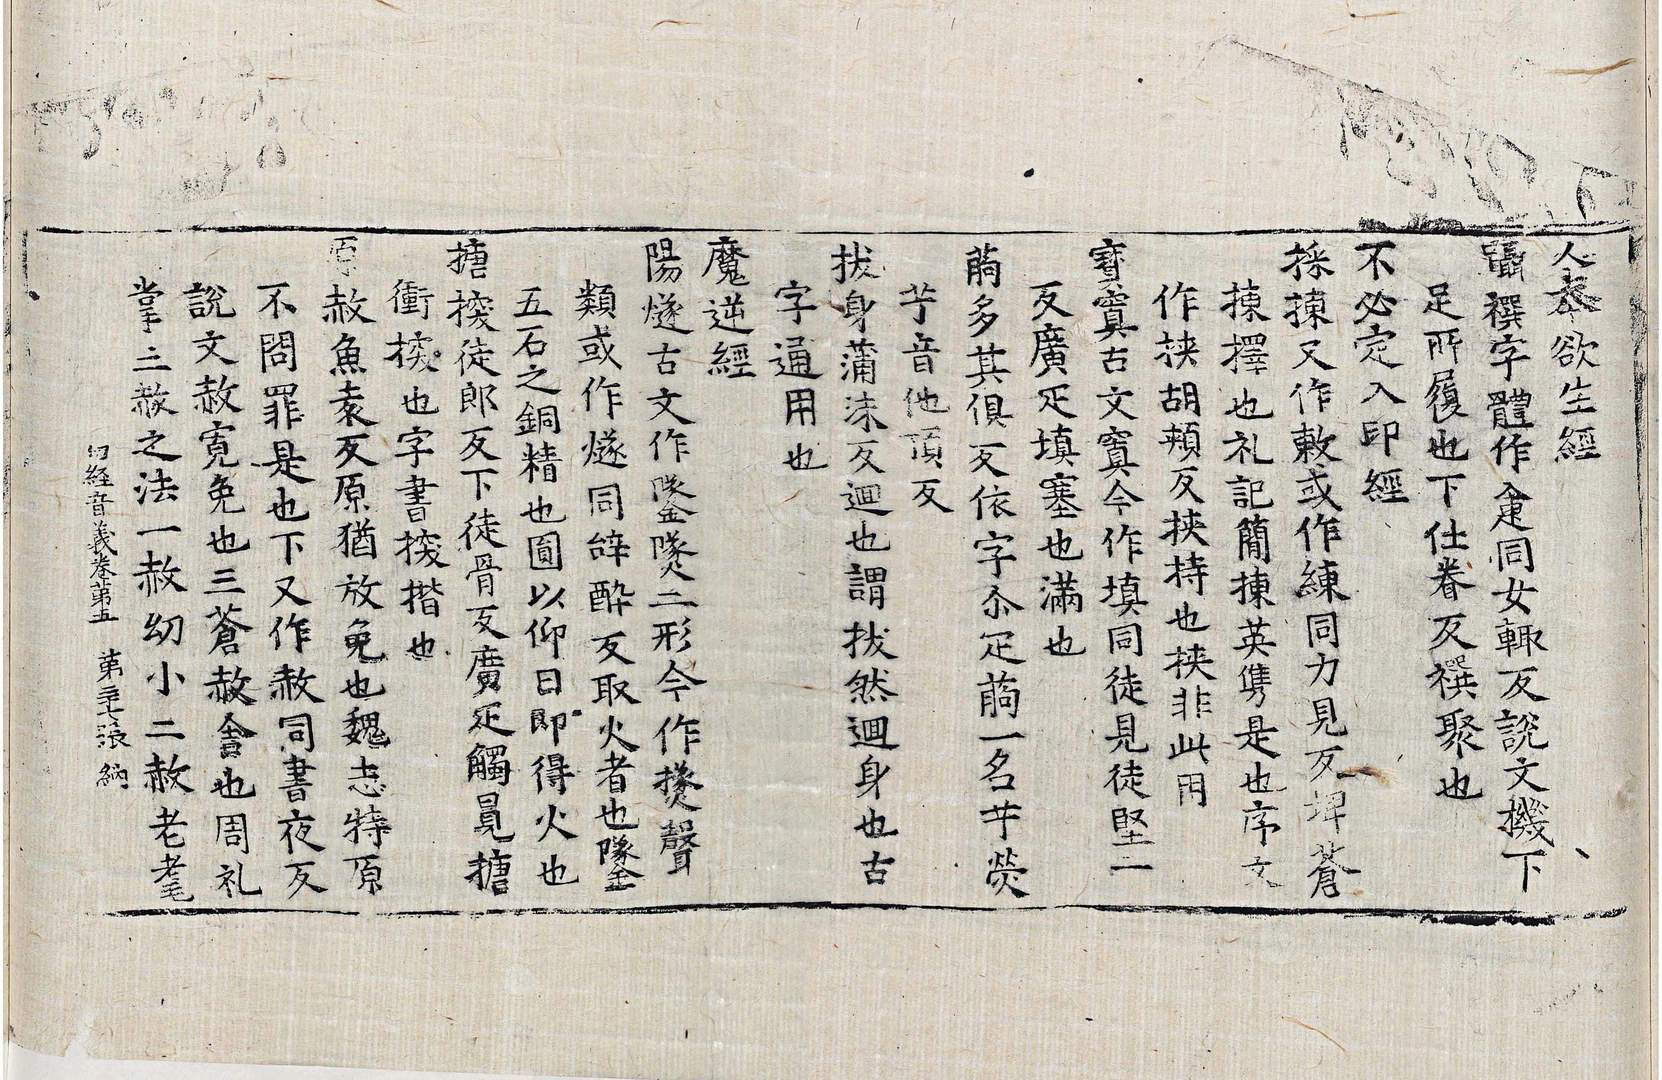 人本欲生經
躡襈字體作𨄔同女輒反說文機下
足所履也下仕眷反襈聚也
不必定入印經
採揀又作敕或作練同力見反埤蒼
揀擇也礼記簡揀英隽是也序文
作挾胡頰反挾持也挾非此用
寶窴古文窴今作填同徒見徒堅二
反廣疋填塞也滿也
萠多其俱反依字尒疋萠一名芐熒
芐音他頂反
拔身蒲沫反迴也謂拔然迴身也古
字通用也
魔逆經
陽燧古文作䥙㷭二形今作㸂聲
類或作燧同辝醉反取火者也䥙
五石之銅精也圓以仰日即得火也
搪揬徒郎反下徒骨反廣疋觸冒搪
衝揬也字書揬揩也
原赦魚袁反原猶放免也魏志特原
不問罪是也下又作赦同書夜反
說文赦寬免也三蒼赦舍也周礼
掌三赦之法一赦幼小二赦老耄
切経音義卷第五 第三七張 納